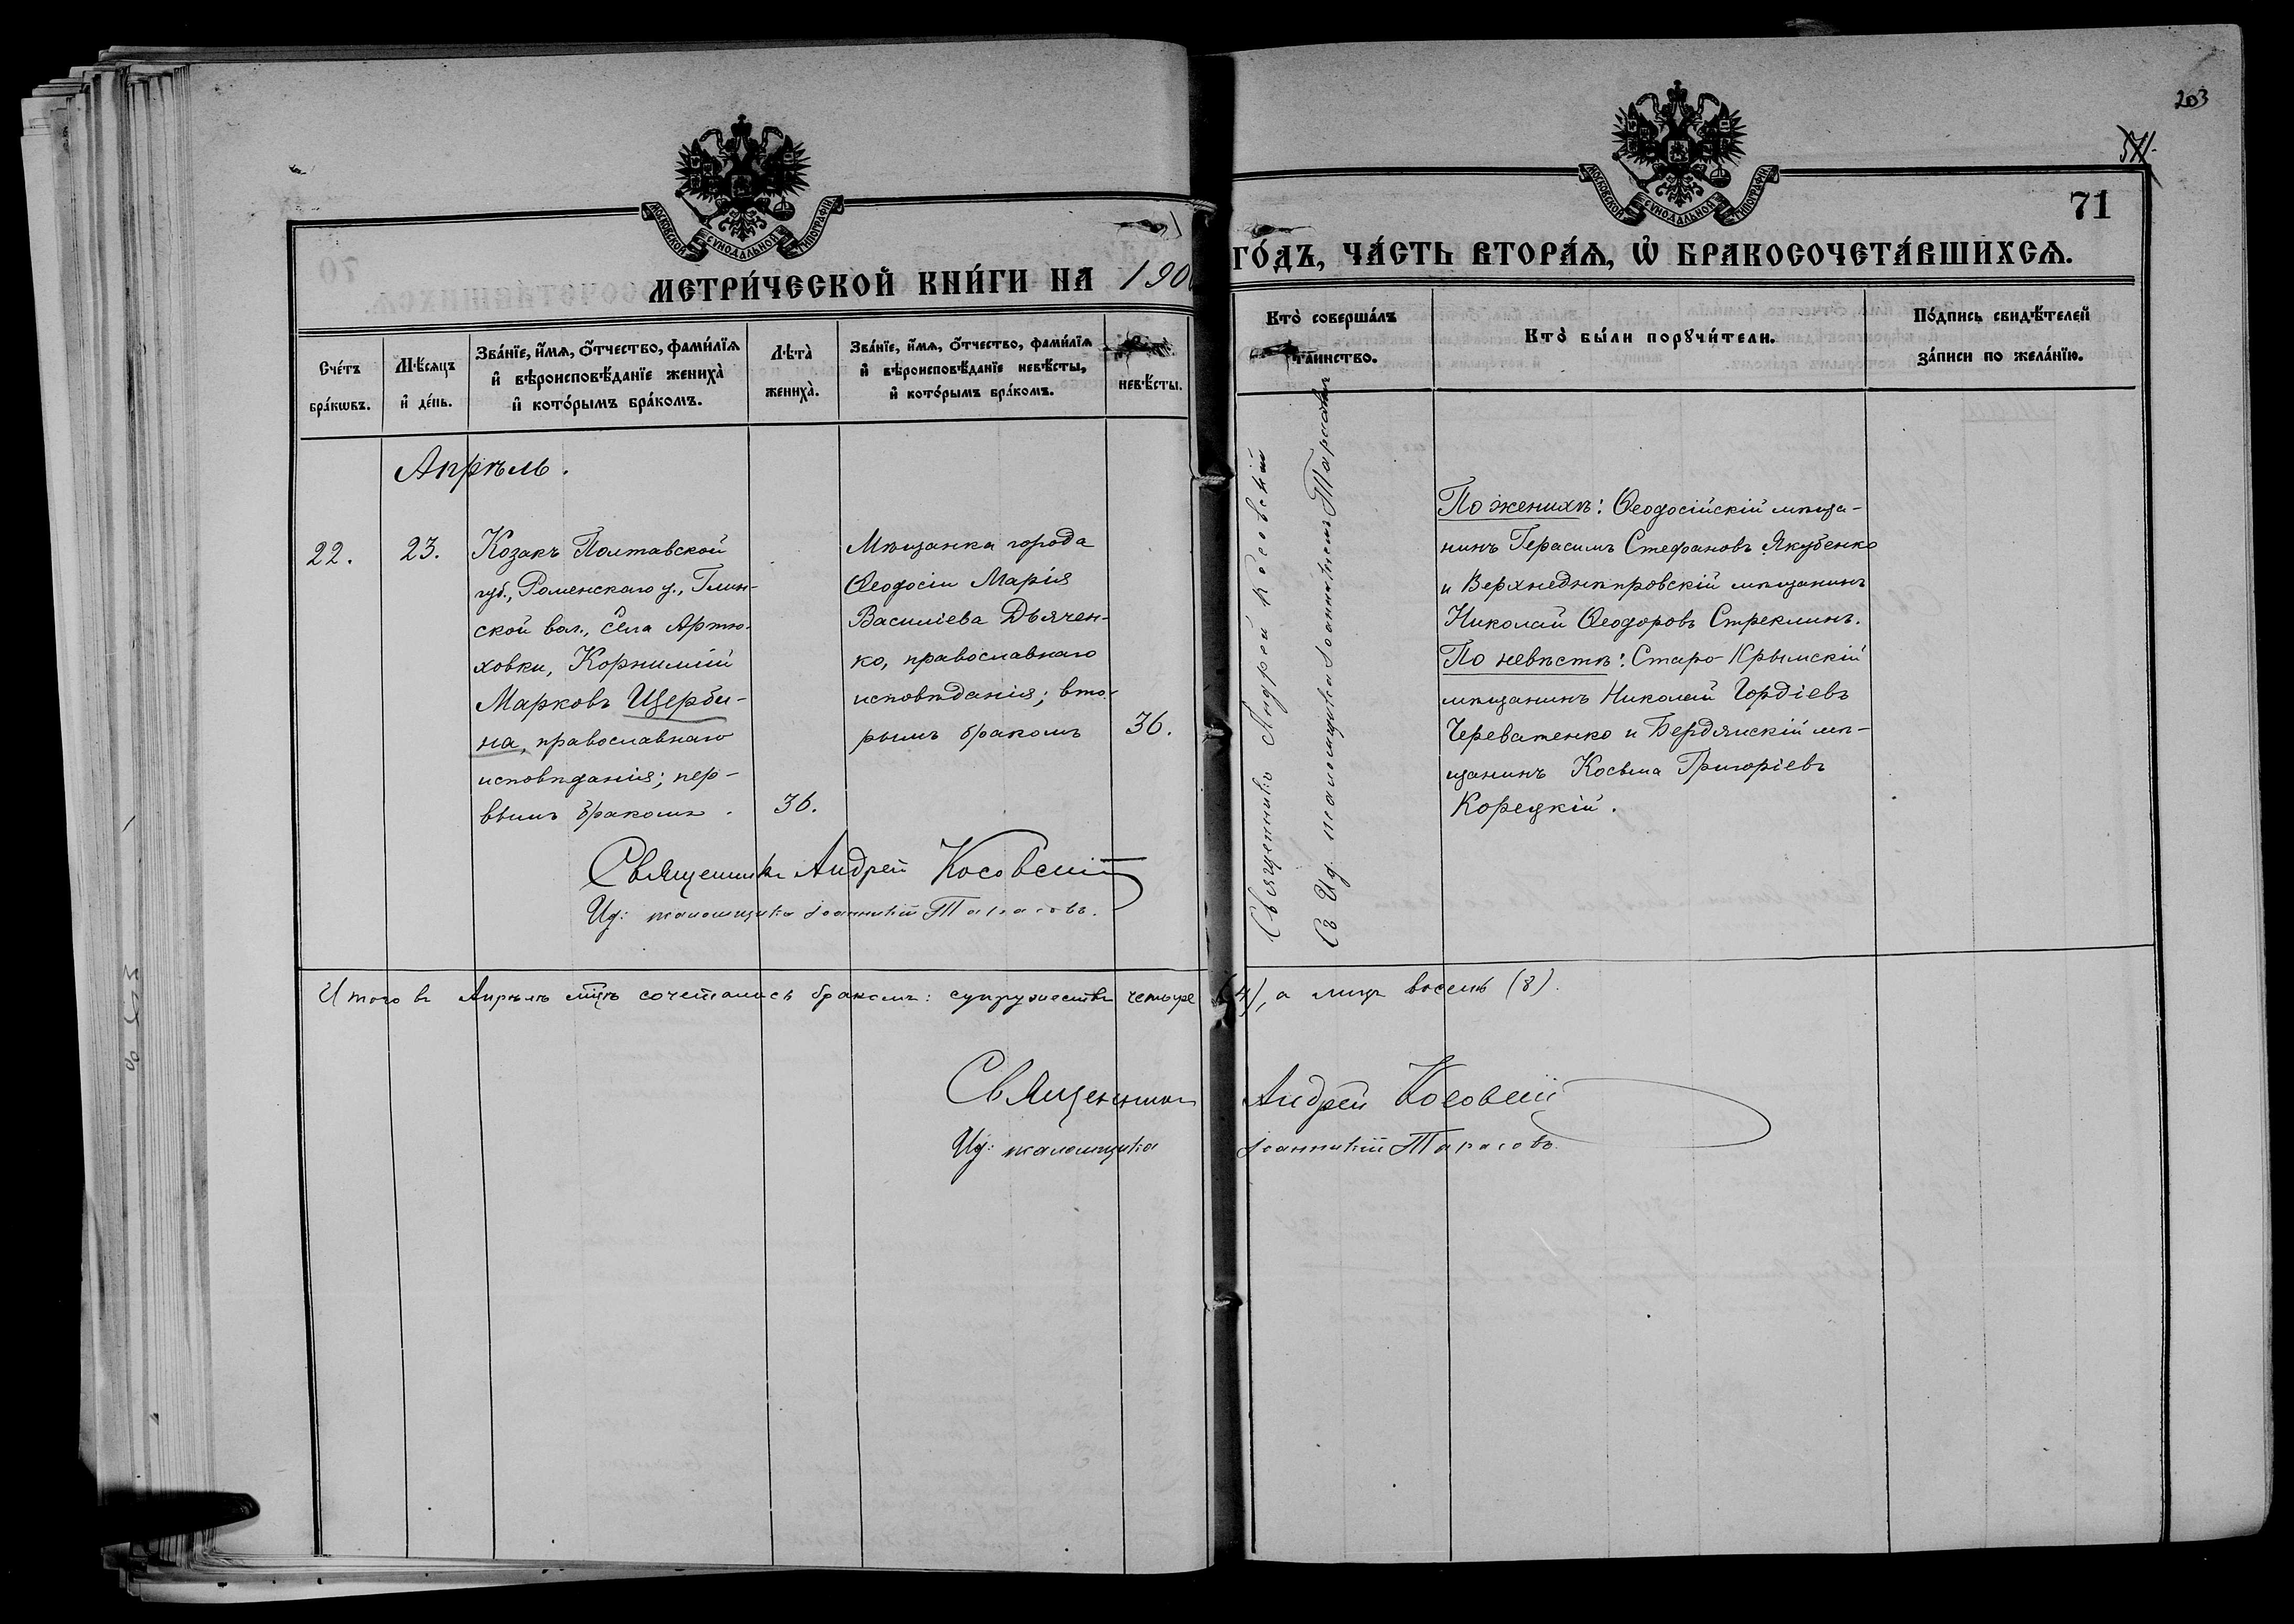 203
571.
71
МОСКОВСКОЙ СУНОДАЛЬНОЙ ТИПОГРАФІИ
МОСКОВСКОЙ СУНОДАЛЬНОЙ ТИПОГРАФІИ
МЕТРИ́ЧЕСКОЙ КНИ́ГИ НА 190
ГО́ДЪ, ЧА́СТЬ ВТОРА́Ѧ, Ѽ БРАКОСОЧЕТА́ВШИХСѦ.
Сче́тъ
бра́кѡвъ.
Мѣ́сяцъ
и҆ де́нь.
Зва́нїе, и҆́мѧ, ѻ҆́тчество, фами́лїѧ
и҆ вѣроисповѣ́данїе жениха̀
и҆ кото́рымъ бра́комъ.
Лѣта̀
жениха̀.
Зва́нїе, и҆́мѧ, ѻ҆́тчество, фами́лїѧ
и҆ вѣроисповѣ́данїе невѣ́сты,
и҆ кото́рымъ бра́комъ.
невѣ́сты.
Кто̀ соверша́лъ
та́инство.
Кто̀ бы́ли порꙋчи́тели.
По́дпись свидѣ́телей
за́писи по жела́нїю.
Апрѣль.
22.
23.
Козакъ Полтавской
губ., Роменскаго у., Глин-
ской вол., села Артю-
ховки, Корнилій
Марковъ Щерби-
на, православнаго
исповѣданія; пер-
вымъ бракомъ.
36.
Мѣщанка города
Ѳеодосіи Марія
Василіева Дьячен-
ко, православнаго
исповѣданія; вто-
рымъ бракомъ
36.
Священникъ Андрей Косовскій
Съ И.д. псаломщика Іоанникіемъ Тарасовымъ
По женихѣ: Ѳеодосійскій мѣща-
нинъ Герасимъ Стефановъ Якубенко
и Верхнеднѣпровскій мѣщанинъ
Николай Ѳеодоровъ Стреклинъ.
По невѣстѣ: Старо-Крымскій
мѣщанинъ Николай Гордіевъ
Череватенко и Бердянскій мѣ-
щанинъ Косьма Григоріевъ
Корецкій.
Священникъ Андрей Косовскій
И.д: псаломщика Іоанникій Тарасовъ.
Итого въ Апрѣлѣ мцѣ сочеталось бракомъ: супружествъ четыре (4), а лицъ восемь (8).
Священникъ Андрей Косовскій
И.д: псаломщика Іоанникій Тарасовъ